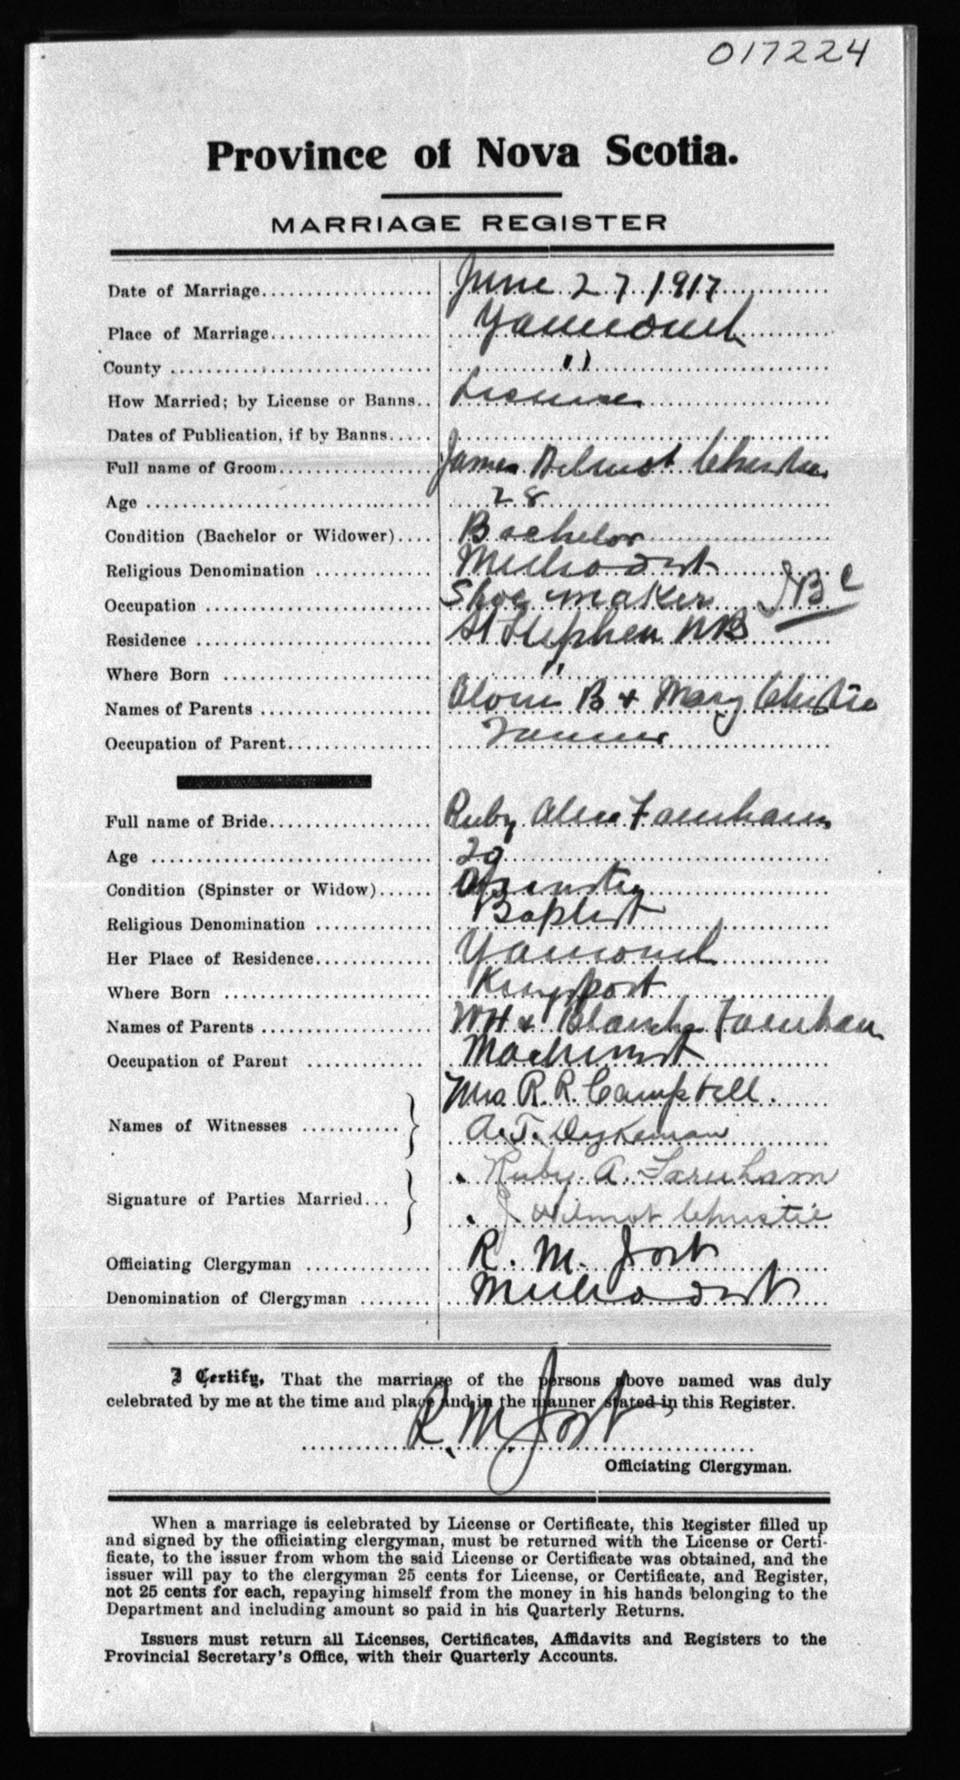 017224
Province of Nova Scotia.
MARRIAGE REGISTER
Date of Marriage.................... June 27 1917
Place of Marriage................... Yarmouth
County .............................. "
How Married; by License or Banns.. License
Dates of Publication, if by Banns.....
Full name of Groom.................. James Wilmot Christie
Age .................................. 28
Condition (Bachelor or Widower).... Bachelor
Religious Denomination .............. Methodist
Occupation .......................... Shoe maker
Residence ........................... St Stephen NB
Where Born ......................... "
Names of Parents .................... B & Mary Christie
Occupation of Parent.................
Full name of Bride................... Ruby Alice Farnham
Age .................................. 29
Condition (Spinster or Widow)...... Spinster
Religious Denomination .............. Baptist
Her Place of Residence............... Yarmouth
Where Born ......................... Kingsport
Names of Parents .................... WH & Blanche Farnham
Occupation of Parent .............. Machinist
Names of Witnesses ........... Mrs R. R. Campbell.
A. T. Dykeman
Signature of Parties Married... Ruby A. Farnham
J Wilmot Christie
Officiating Clergyman ............... R. M. Jost
Denomination of Clergyman ........ Methodist
I Certify, That the marriage of the persons above named was duly
celebrated by me at the time and place and in the manner stated in this Register.
R. M. Jost
Officiating Clergyman.
When a marriage is celebrated by License or Certificate, this Register filled up
and signed by the officiating clergyman, must be returned with the License or Certi-
ficate, to the issuer from whom the said License or Certificate was obtained, and the
issuer will pay to the clergyman 25 cents for License, or Certificate, and Register,
not 25 cents for each, repaying himself from the money in his hands belonging to the
Department and including amount so paid in his Quarterly Returns.
Issuers must return all Licenses, Certificates, Affidavits and Registers to the
Provincial Secretary's Office, with their Quarterly Accounts.